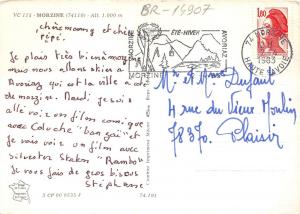 VC 114 - MORZINE (74110) - Alt. 1.000 m
BR-14907
chère mamy et cher
pépé.
Je plais très bien à morzine
mais nous allons skier a
Avoriaz qui est la ville
de morzine. Mardi je suis
allé voir un film avec
avec Coluche "banzaï" et
je vais voir un film avec
silvester Stalon "Rambo"
Je vous fais de gros bisous
Stéphane
MORZINE
ÉTÉ-HIVER
AVORIAZ
MORZINE
1,80
HAUTE SAVOIE
1983
Mr et Mme Dufour
4 rue du Vieux Moulin
78370. Plaisir
3 CP 00 9535 F
74.191